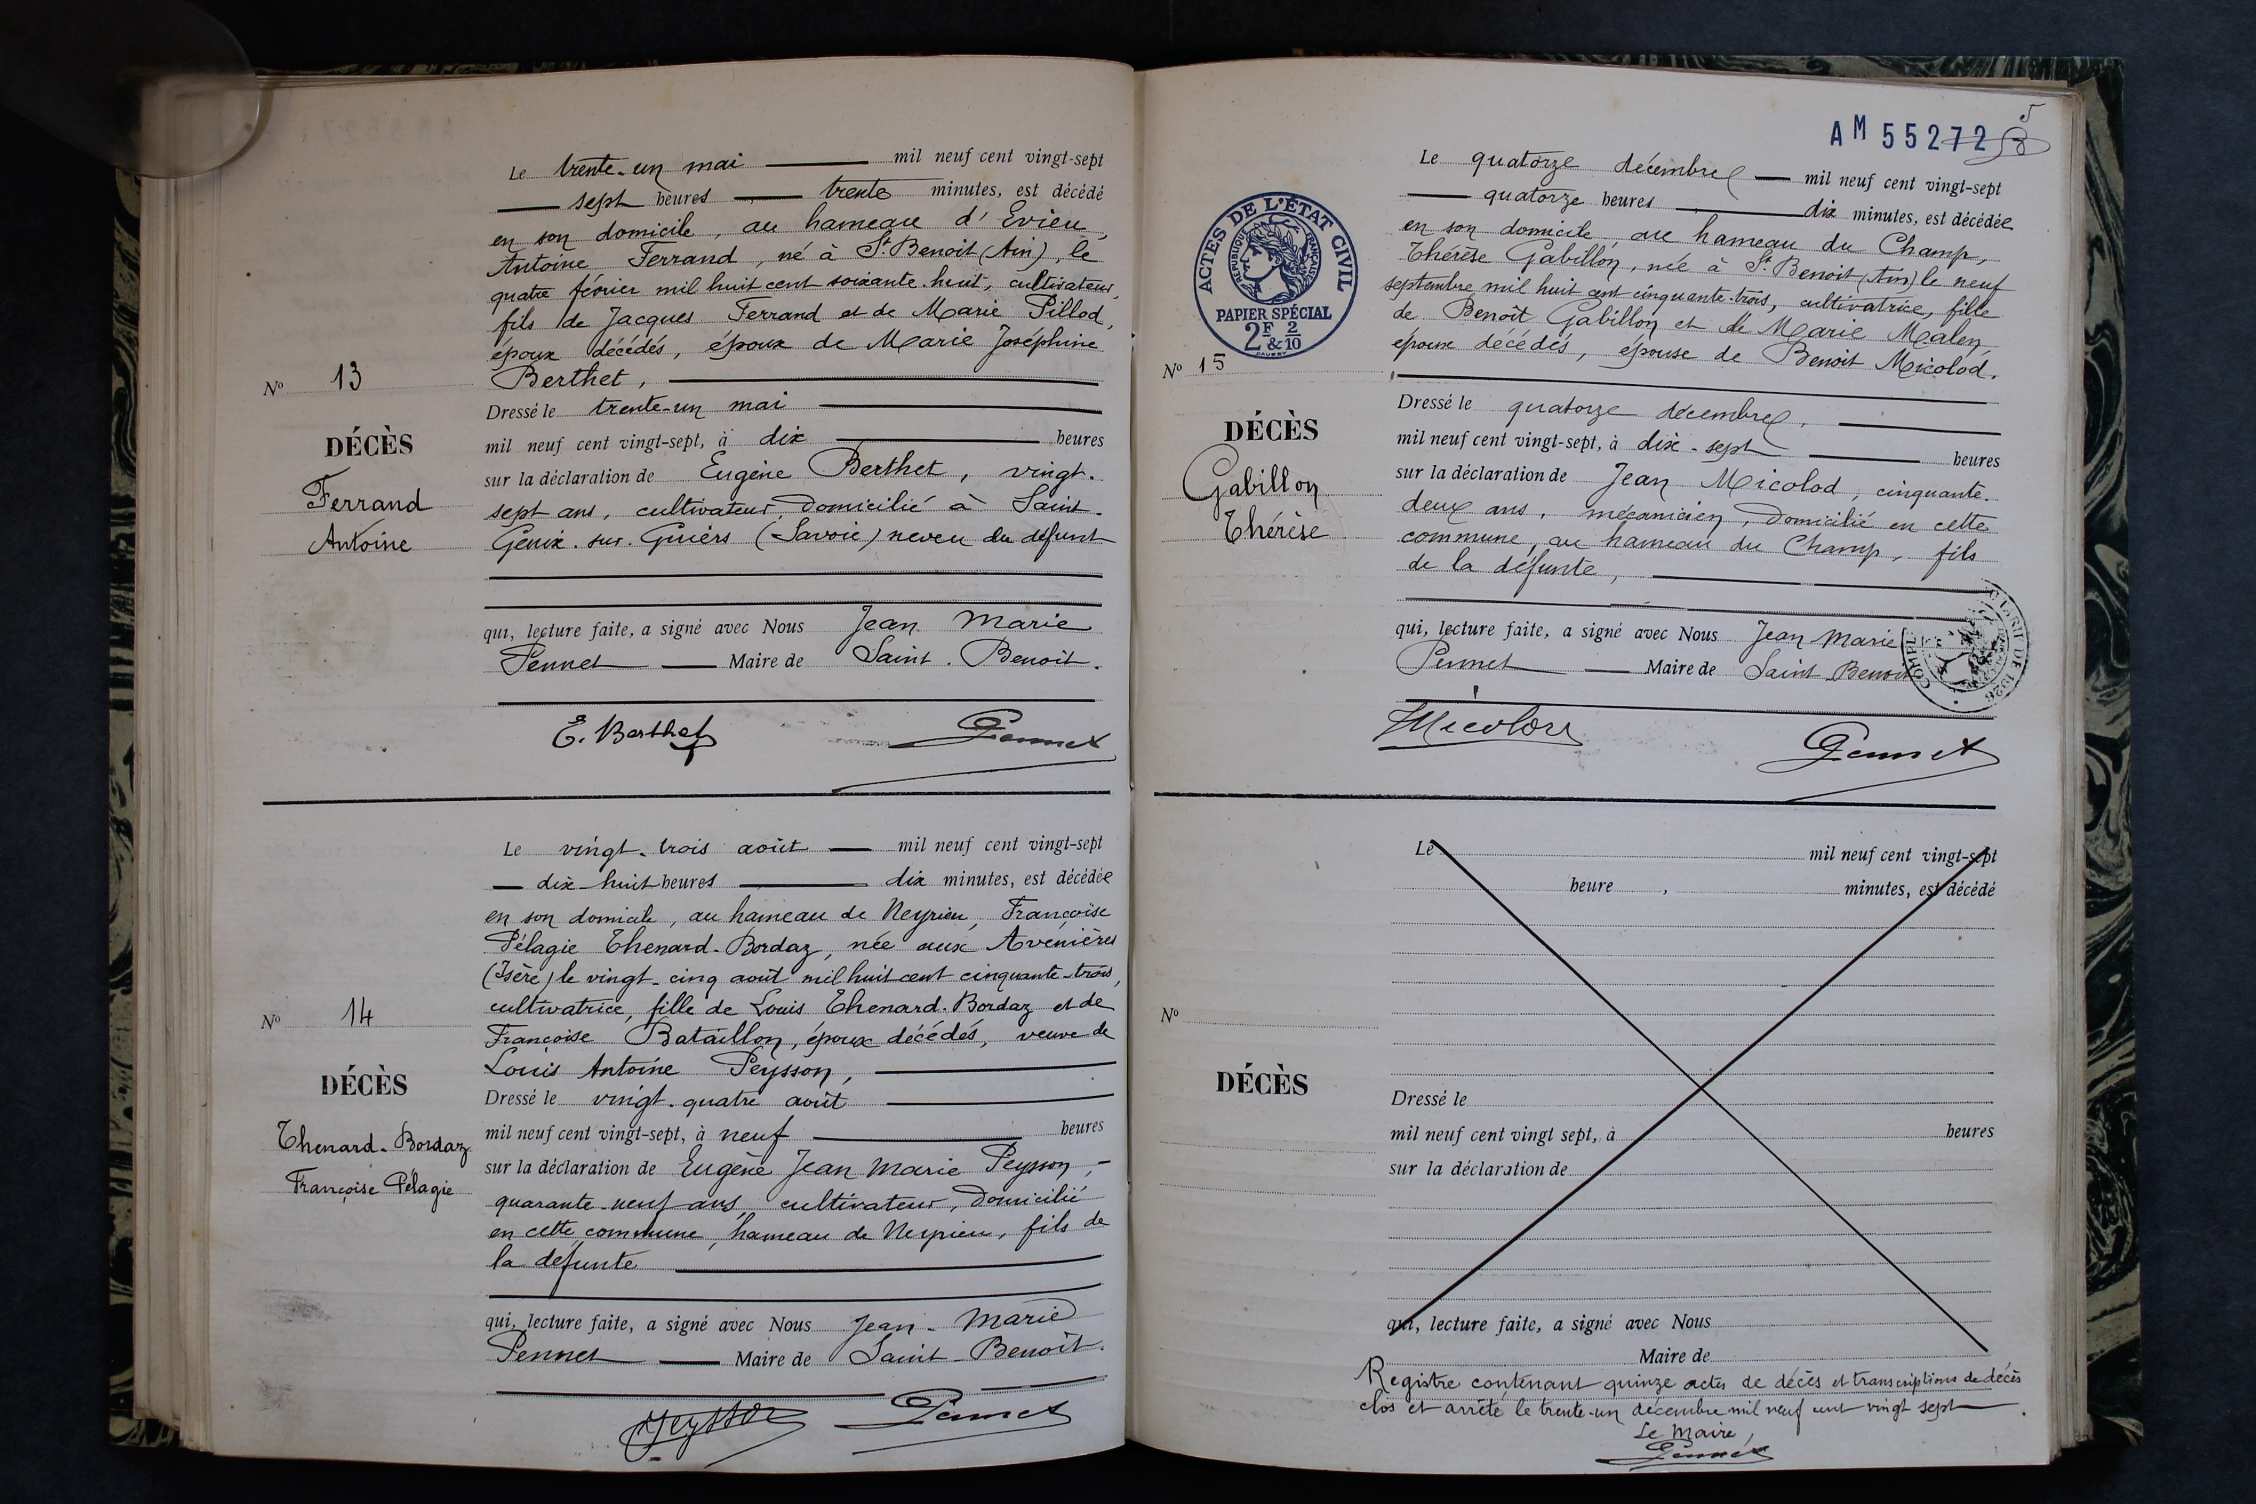 Le trente-un mai mil neuf cent vingt-sept
sept heures trente minutes, est décédé
en son domicile, au hameau d'Evieu,
Antoine Ferrand, né à St Benoit (Ain), le
quatre février mil huit cent soixante-huit, cultivateur,
fils de Jacques Ferrand et de Marie Pillod,
époux décédés, époux de Marie Joséphine
Berthet,
No 13
DÉCÈS
Ferrand
Antoine
Dressé le trente-un mai
mil neuf cent vingt-sept, à dix heures
sur la déclaration de Eugène Berthet, vingt-
sept ans, cultivateur, domicilié à Saint-
Genix-sur-Guiers (Savoie) neveu du défunt
qui, lecture faite, a signé avec Nous Jean Marie
Pennet Maire de Saint-Benoit.
E. Berthet
Pennet
Le vingt-trois août mil neuf cent vingt-sept
dix-huit heures dix minutes, est décédée
en son domicile, au hameau de Neyrieu, Françoise
Pélagie Thenard-Bordaz, née aux Avenières
(Isère) le vingt-cinq août mil huit cent cinquante-trois,
cultivatrice, fille de Louis Thenard-Bordaz et de
Françoise Bataillon, époux décédés, veuve de
Louis Antoine Peysson,
No 14
DÉCÈS
Thenard-Bordaz
Françoise Pélagie
Dressé le vingt-quatre août
mil neuf cent vingt-sept, à neuf heures
sur la déclaration de Eugène Jean Marie Peysson,
quarante-neuf ans, cultivateur, domicilié
en cette commune, hameau de Neyrieu, fils de
la défunte
qui, lecture faite, a signé avec Nous Jean-Marie
Pennet Maire de Saint-Benoit.
Peysson
Pennet
5
AM 55272
ACTES DE L'ÉTAT CIVIL
RÉPUBLIQUE FRANÇAISE
PAPIER SPÉCIAL
2F & 2/10
Le quatorze décembre mil neuf cent vingt-sept
quatorze heures dix minutes, est décédée
en son domicile, au hameau du Champ,
Thérèse Gabillon, née à St Benoit (Ain) le neuf
septembre mil huit cent cinquante-trois, cultivatrice, fille
de Benoît Gabillon et de Marie Malen
époux décédés, épouse de Benoit Micolod.
No 15
DÉCÈS
Gabillon
Thérèse
Dressé le quatorze décembre,
mil neuf cent vingt-sept, à dix-sept heures
sur la déclaration de Jean Micolod, cinquante-
deux ans, mécanicien, domicilié en cette
commune, au hameau du Champ, fils
de la défunte,
qui, lecture faite, a signé avec Nous Jean Marie
Pennet Maire de Saint-Benoit
Pennet
Le mil neuf cent vingt-sept
heure , minutes, est décédé
No
DÉCÈS
Dressé le
mil neuf cent vingt sept, à heures
sur la déclaration de
qui, lecture faite, a signé avec Nous
Maire de
Registre contenant quinze actes de décès et transcriptions de décès
clos et arrêté le trente-un décembre mil neuf cent vingt sept
Le Maire,
Pennet